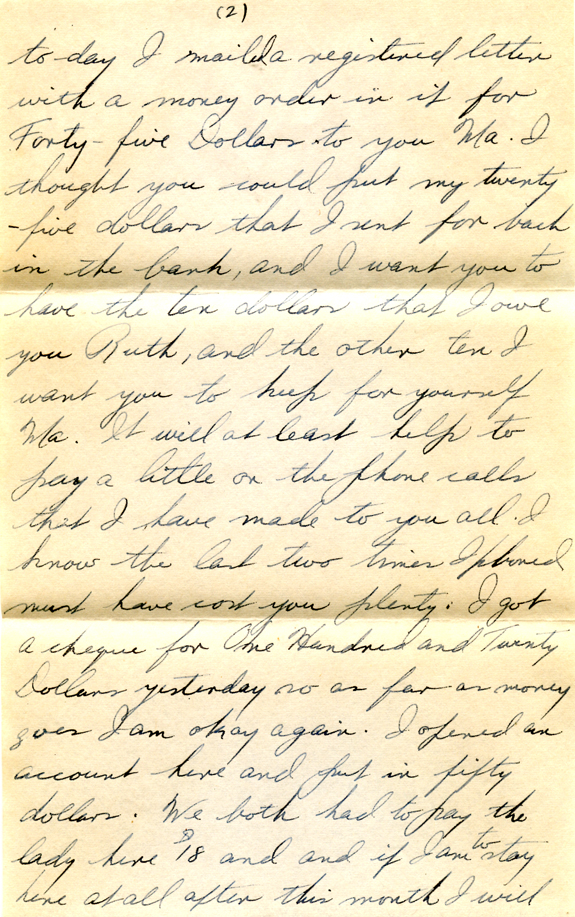 (2)
to-day I mailed a registered letter
with a money order in it for
Forty-five Dollars to you Ma. I
thought you could put my twenty
-five dollars that I sent for back
in the bank, and I want you to
have the ten dollars that I owe
you Ruth, and the other ten I
want you to keep for yourself
Ma. It will at least help to
pay a little on the phone calls
that I have made to you all. I
know the last two times I phoned
must have cost you plenty. I got
a cheque for One Hundred and Twenty
Dollars yesterday so as far as money
goes I am okay again. I opened an
account here and put in fifty
dollars. We both had to pay the
lady here $18 and and if I am to stay
here at all after this month I will